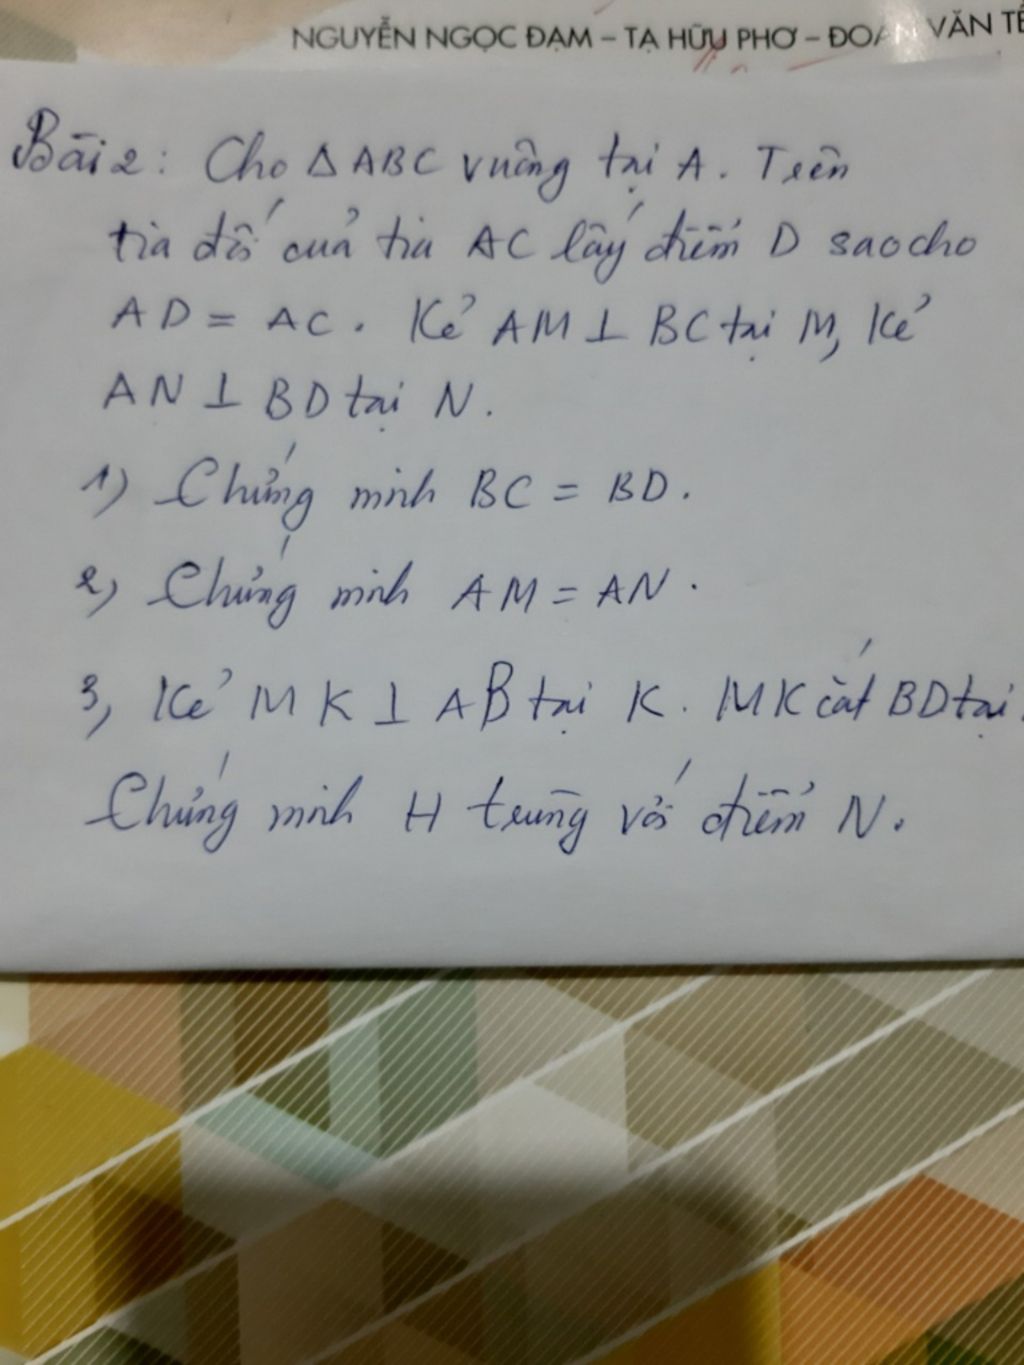 NGUYỄN NGỌC ĐẠM – TẠ HỮU PHƠ – ĐOÀN VĂN TẾ
Bài 2: Cho Δ ABC vuông tại A. Trên
tia đối của tia AC lấy điểm D sao cho
AD = AC. Kẻ AM ⊥ BC tại M, Kẻ
AN ⊥ BD tại N.
1) Chứng minh BC = BD.
2) Chứng minh AM = AN.
3, Kẻ MK ⊥ AB tại K. MK cắt BD tại
Chứng minh H trùng với điểm N.